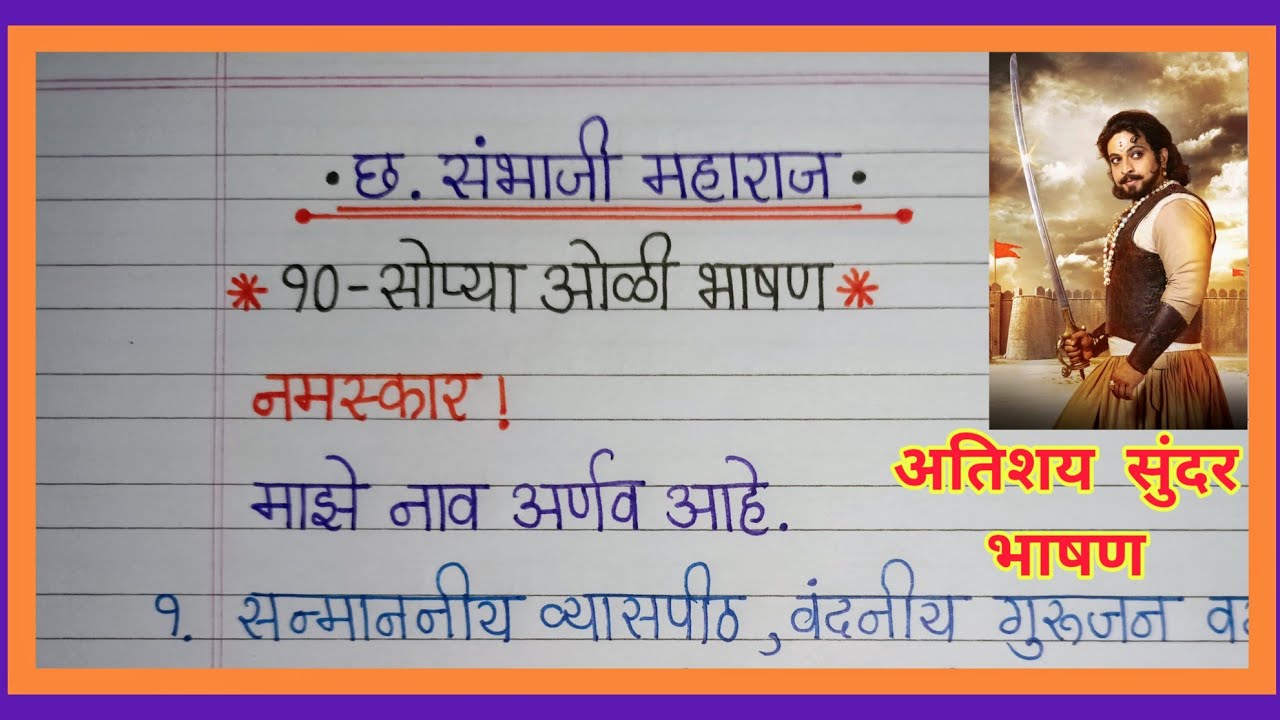 • छ. संभाजी महाराज •
* १०-सोप्या ओळी भाषण *
नमस्कार!
माझे नाव अर्णव आहे.
१. सन्माननीय व्यासपीठ, वंदनीय गुरूजन
अतिशय सुंदर
भाषण